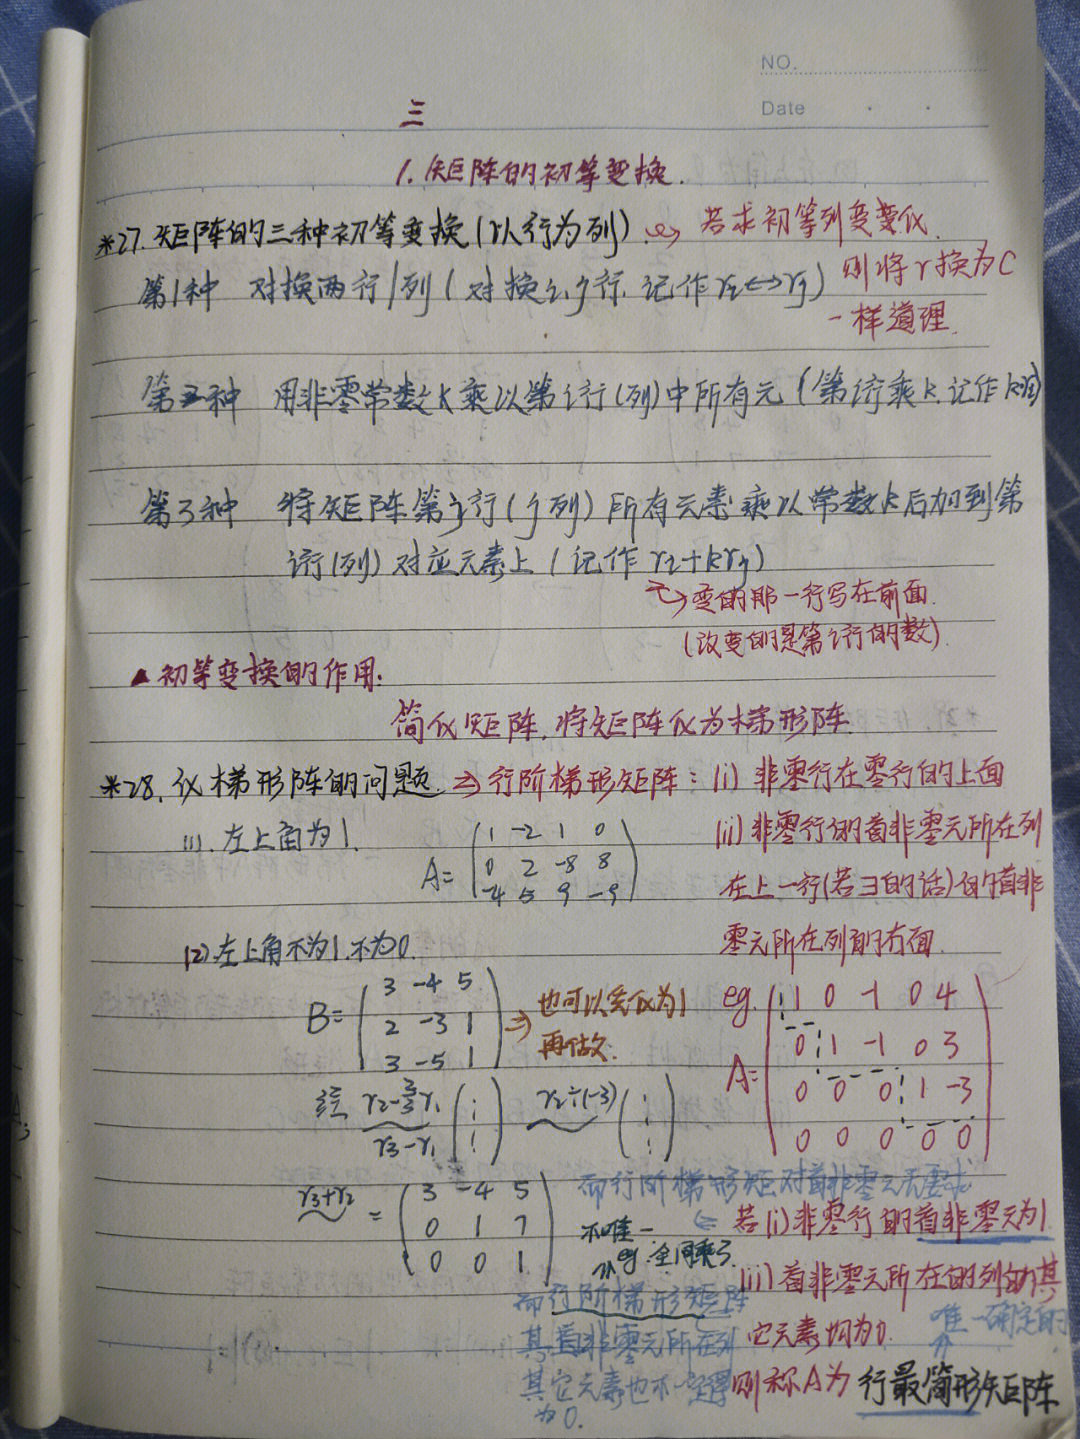 NO.
Date
三
1. 矩阵的初等变换.
*27. 矩阵的三种初等变换(以行为列). → 若求初等列变变化.
则将r换为C
一样道理.
第1种 对换两行/列(对换i,j行, 记作ri↔rj)
第2种 用非零常数k乘以第i行(列)中所有元(第i行乘k,记作kri)
第3种 将矩阵第j行(j列)所有元素乘以常数k后加到第
i行(列)对应元素上(记作ri+krj)
→变的那一行写在前面.
(改变的是第i行的数)
▲初等变换的作用:
简化矩阵,将矩阵化为梯形阵.
*28. 化梯形阵的问题. ⇒行阶梯形矩阵: (i) 非零行在零行的上面
(1). 左上角为1.
(ii) 非零行的首非零元所在列
在上一行(若∃的话)的首非
零元所在列的右面.
A= (1 -2 1 0
0 2 -8 8
-4 5 9 -9)
(2).左上角不为1.不为0.
B= (3 -4 5
2 -3 1
3 -5 1)
⇒ 也可以先化为1
再做.
eg. A= (1 0 -1 0 4
0 1 -1 0 3
0 0 0 1 -3
0 0 0 0 0)
r2-2/3r1
r3-r1
r2÷(-3)
r3+r2
= (3 -4 5
0 1 7
0 0 1)
而行阶梯形矩对首非零元无要求
不唯一
⇐ 若(i)非零行的首非零元为1.
eg.全同乘3.
(ii)首非零元所在的列的其
它元素均为0.
而行阶梯形矩阵
其首非零元所在列
其它元素也不一定得
为0.
唯一确定的
则称A为 行最简形矩阵